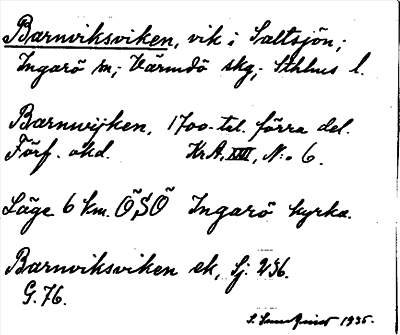 Barnviksviken, vik i Saltsjön;
Ingarö sn; Värmdö skg; Sthlms l.
Barnwijken, 1700-tal. förra del.
Förf. okd. KrA, XXVI, N:o 6.
Läge 6 km. ÖSÖ Ingarö kyrka.
Barnviksviken ek, Sj. 236.
G. 76.
1935.